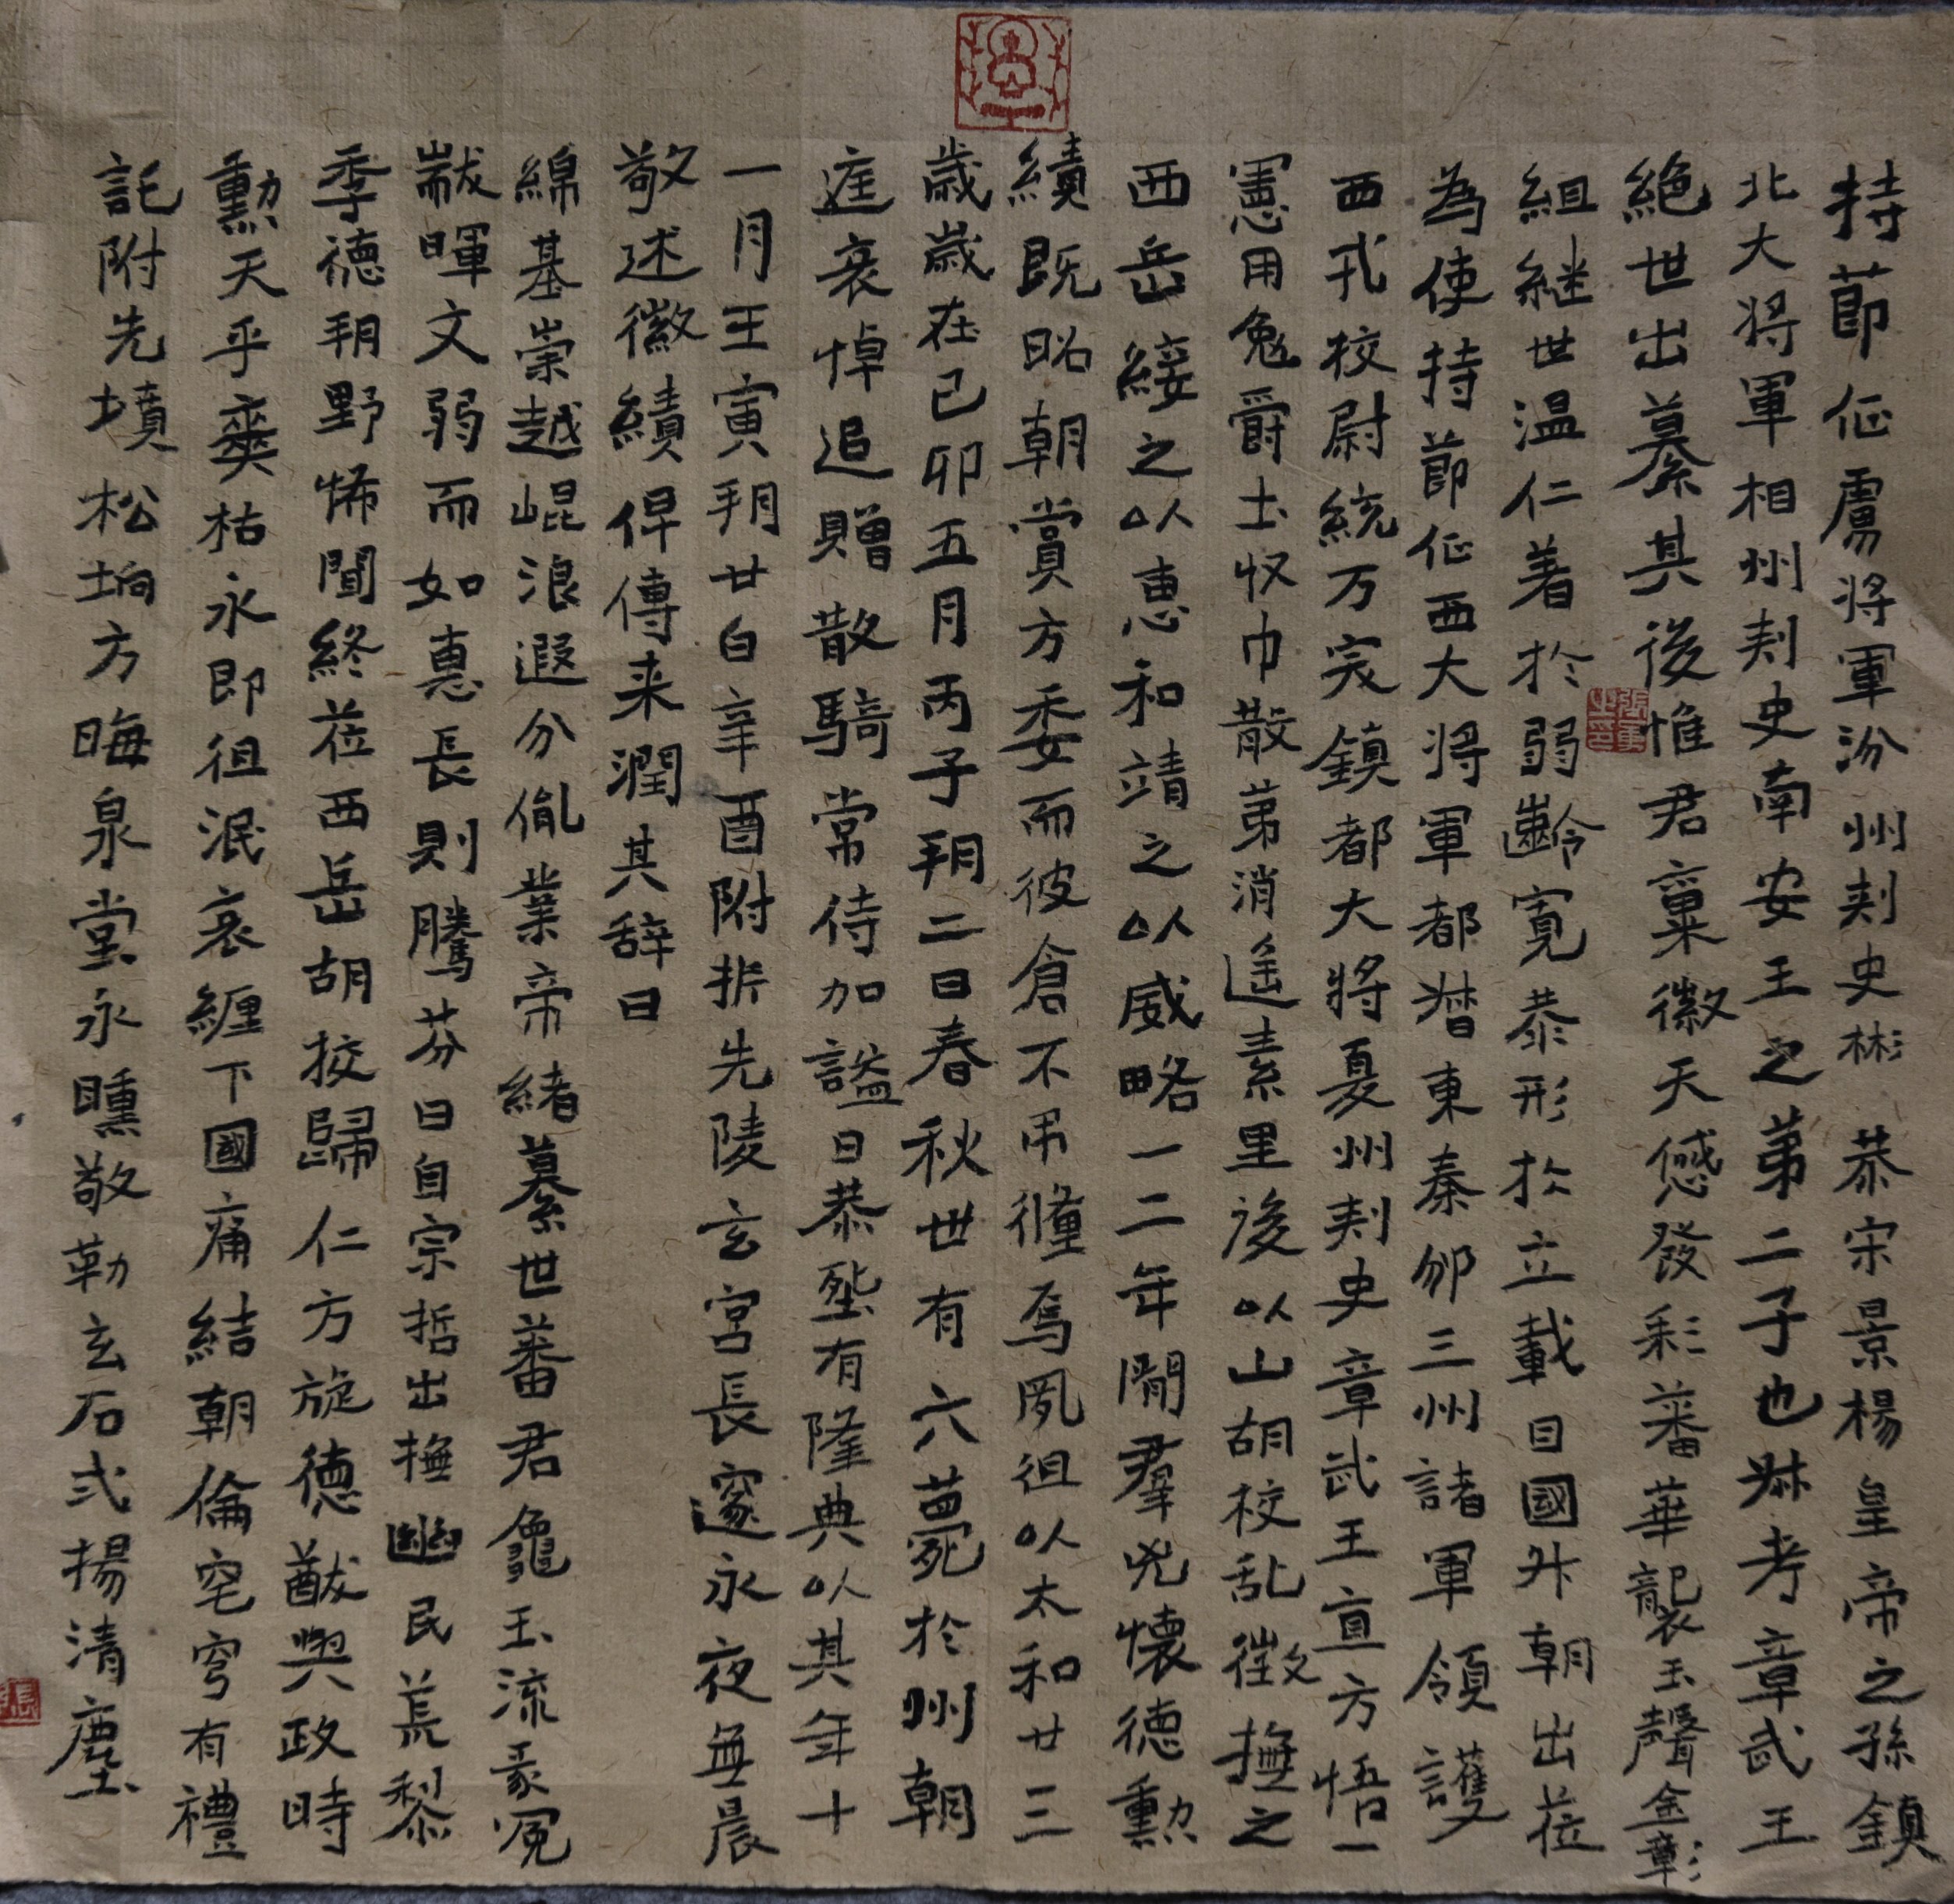 持節征虜將軍汾州刾史彬恭宗景楊皇帝之孫鎮
北大將軍相州刾史南安王之第二子也叔考章武王
絕世出纂其後惟君稟徽天感發彩蕃華襲玉聲金彰
組継世温仁著於弱齡寬恭形於立載目國升朝出莅
為使持節征西大將軍都督東秦邠三州諸軍領護
西戎校尉統万突鎮都大將夏州刾史章武王直方悟一
憲用兔爵土収巾散第消遙素里後以山胡校乱徵撫之
西岳綏之以惠和靖之以威略一二年閒羣兇懷德勲
績既昭朝賞方委而彼倉不弔殲焉夙徂以太和廿三
歲歲在己卯五月丙子朔二日春秋世有六薨於州朝
庭哀悼追贈散騎常侍加謚曰恭埊有隆典以其年十
一月壬寅朔廿白辛酉附於先陵玄宮長邃永夜無晨
敬述徽績俾傳来潤其辞曰
綿基崇越崐浪遐分胤業帝緒纂世蕃君龜玉流彖冕
黻暉文弱而如惠長則騰芬曰自宗哲出撫幽民荒黎
季德朔野怖聞終莅西岳胡挍歸仁方旋德猷與政時
勲天乎奭枯永即徂泯哀纏下國痛結朝倫窀穸有禮
託附先墳松埛方晦泉堂永曛敬勒玄石式揚清塵